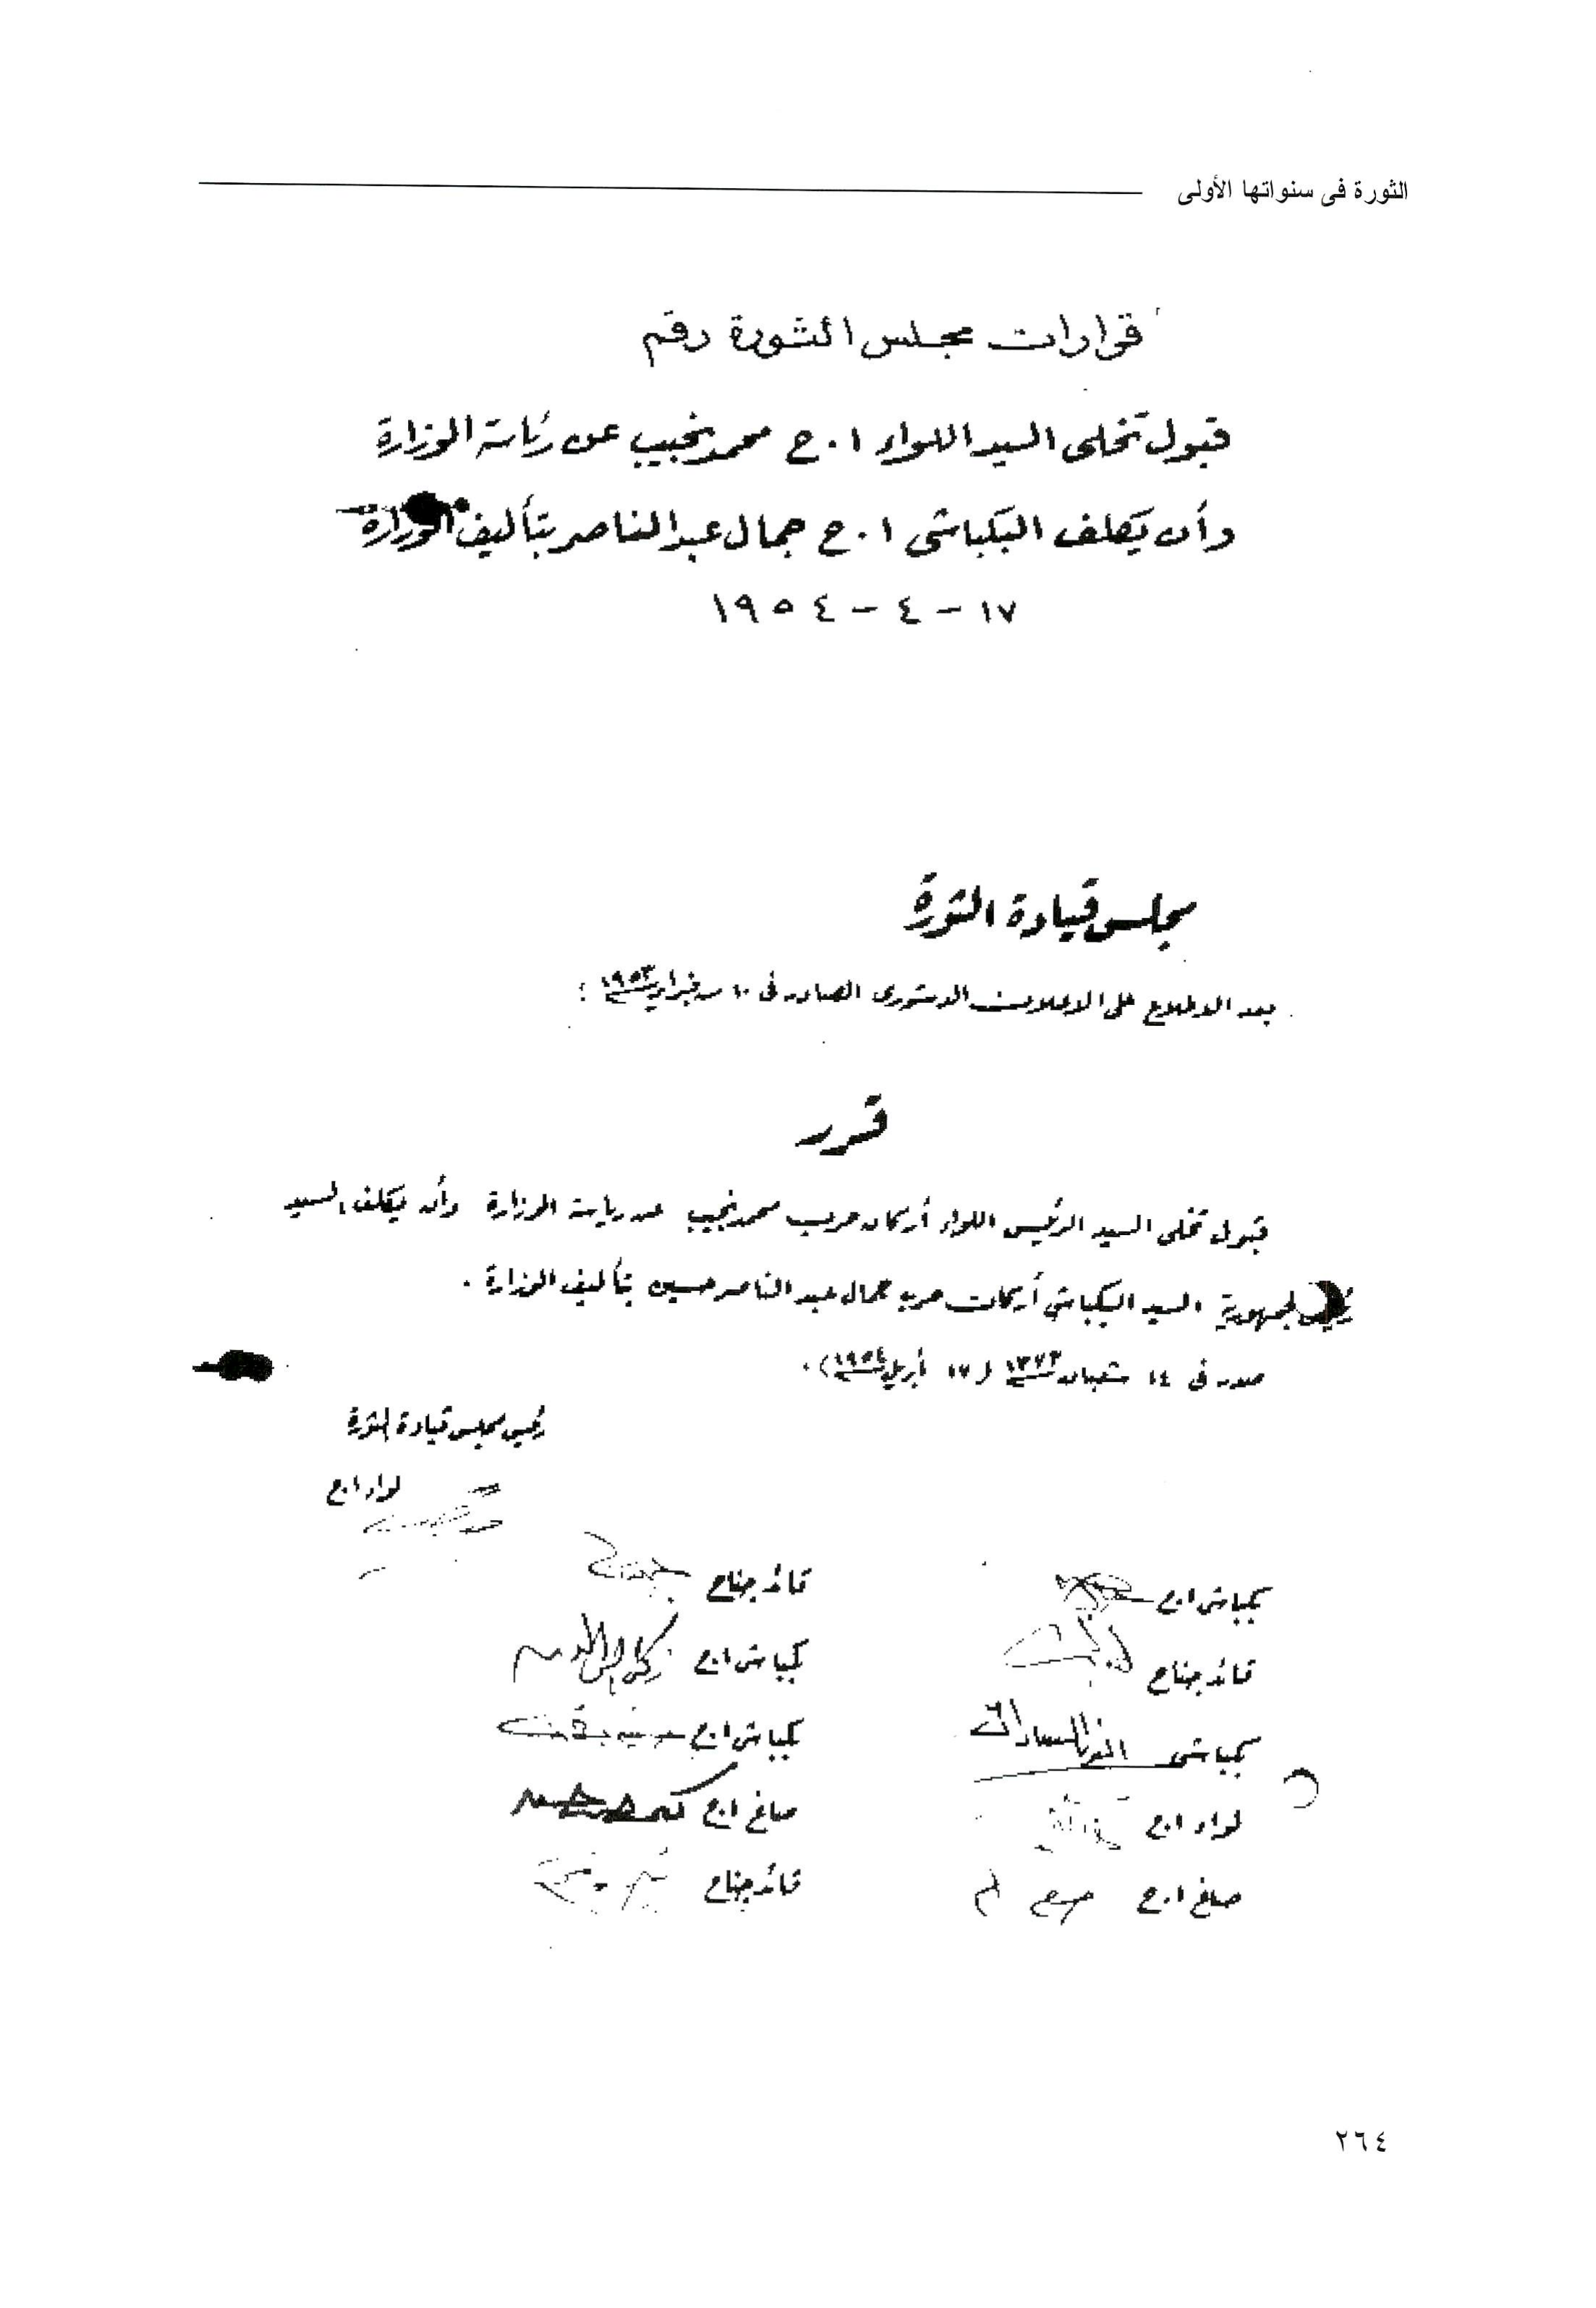 الثورة فى سنواتها الأولى
قرارات مجلس الثورة رقم
قبول تخلى السيد اللواء ا.ح محمد نجيب عن رئاسة الوزارة
وأن يكلف البكباشى ا.ح جمال عبد الناصر بتأليف الوزارة
١٧ - ٤ - ١٩٥٤
مجلس قيادة الثورة
بعد الاطلاع على الاعلان الدستورى الصادر فى ١٠ من فبراير سنة ١٩٥٣ :
قرر
قبول تخلى السيد الرئيس اللواء أركان حرب محمد نجيب عن رياسة الوزارة وأن يكلف السيد
رئيس الجمهورية السيد البكباشى أركان حرب جمال عبد الناصر حسين بتأليف الوزارة .
صدر فى ١٤ شعبان سنة ١٣٧٣ (١٧ أبريل سنة ١٩٥٤) .
رئيس مجلس قيادة الثورة
لواء ا.ح
بكباشى ا.ح
قائد جناح
قائد جناح
بكباشى ا.ح زكريا محيى الدين
بكباشى أنور السادات
بكباشى ا.ح
لواء ا.ح
صاغ ا.ح
صاغ ا.ح
قائد جناح
٢٦٤